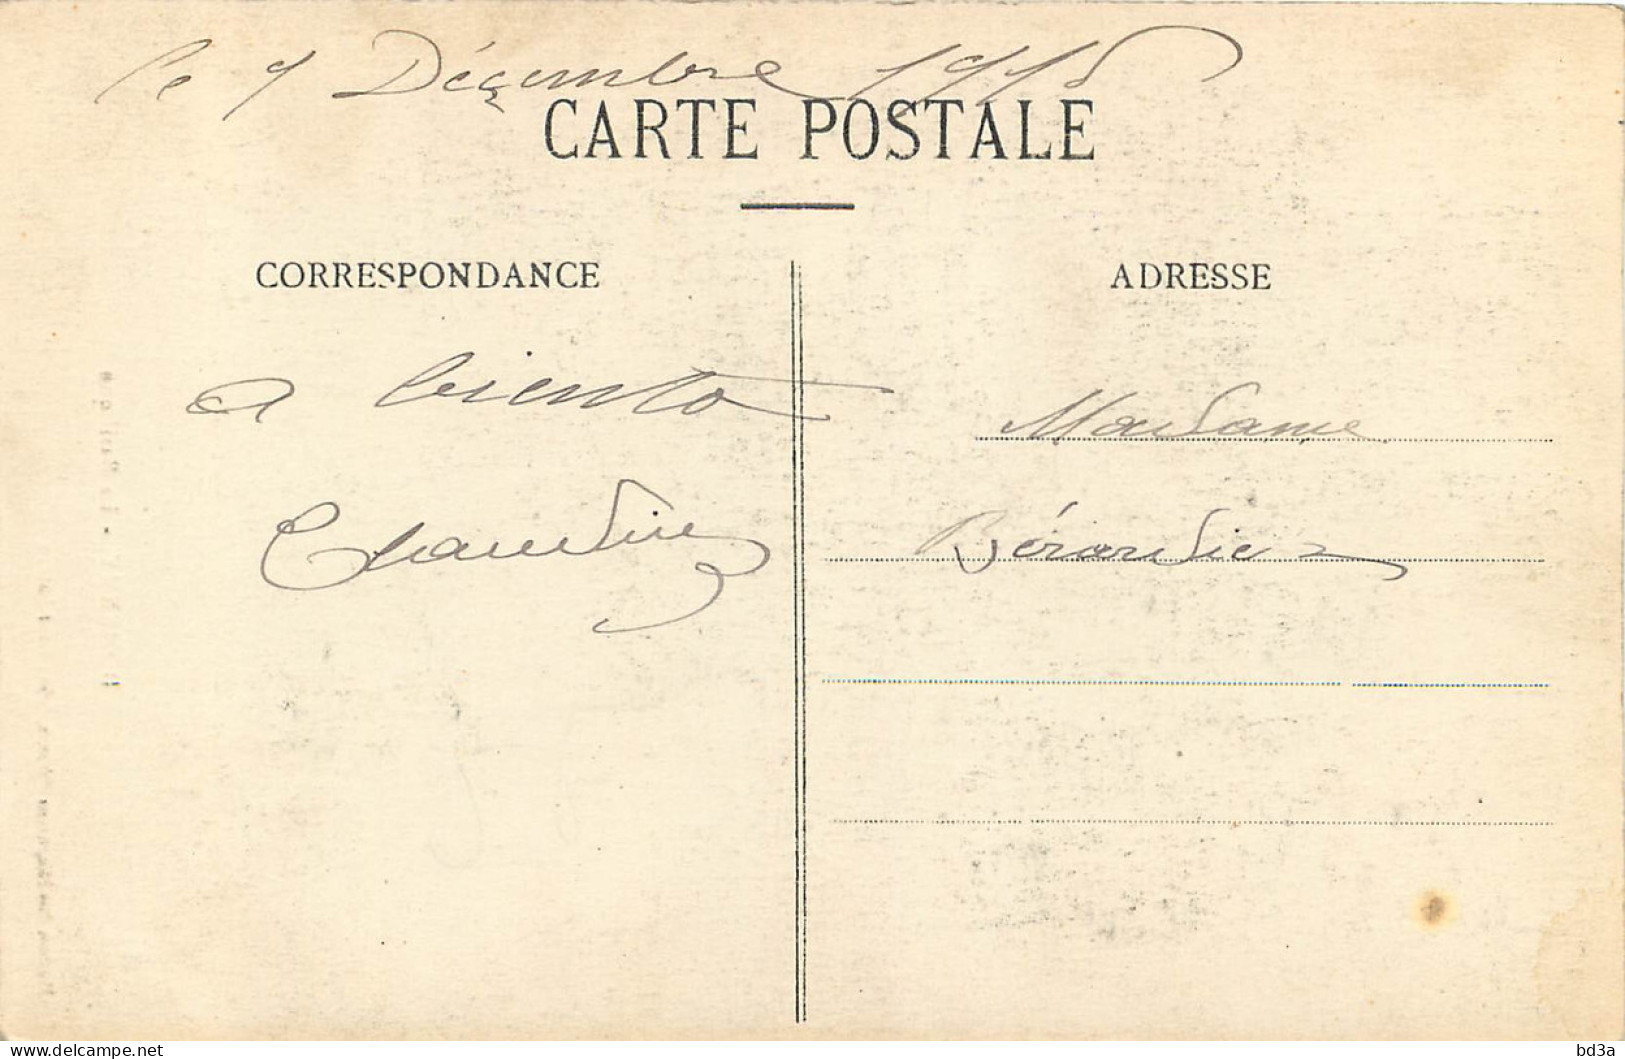 le 7 Décembre 1915
CARTE POSTALE
CORRESPONDANCE
ADRESSE
a biento
Claudius
Madame
Bérardier
www.delcampe.net
bd3a